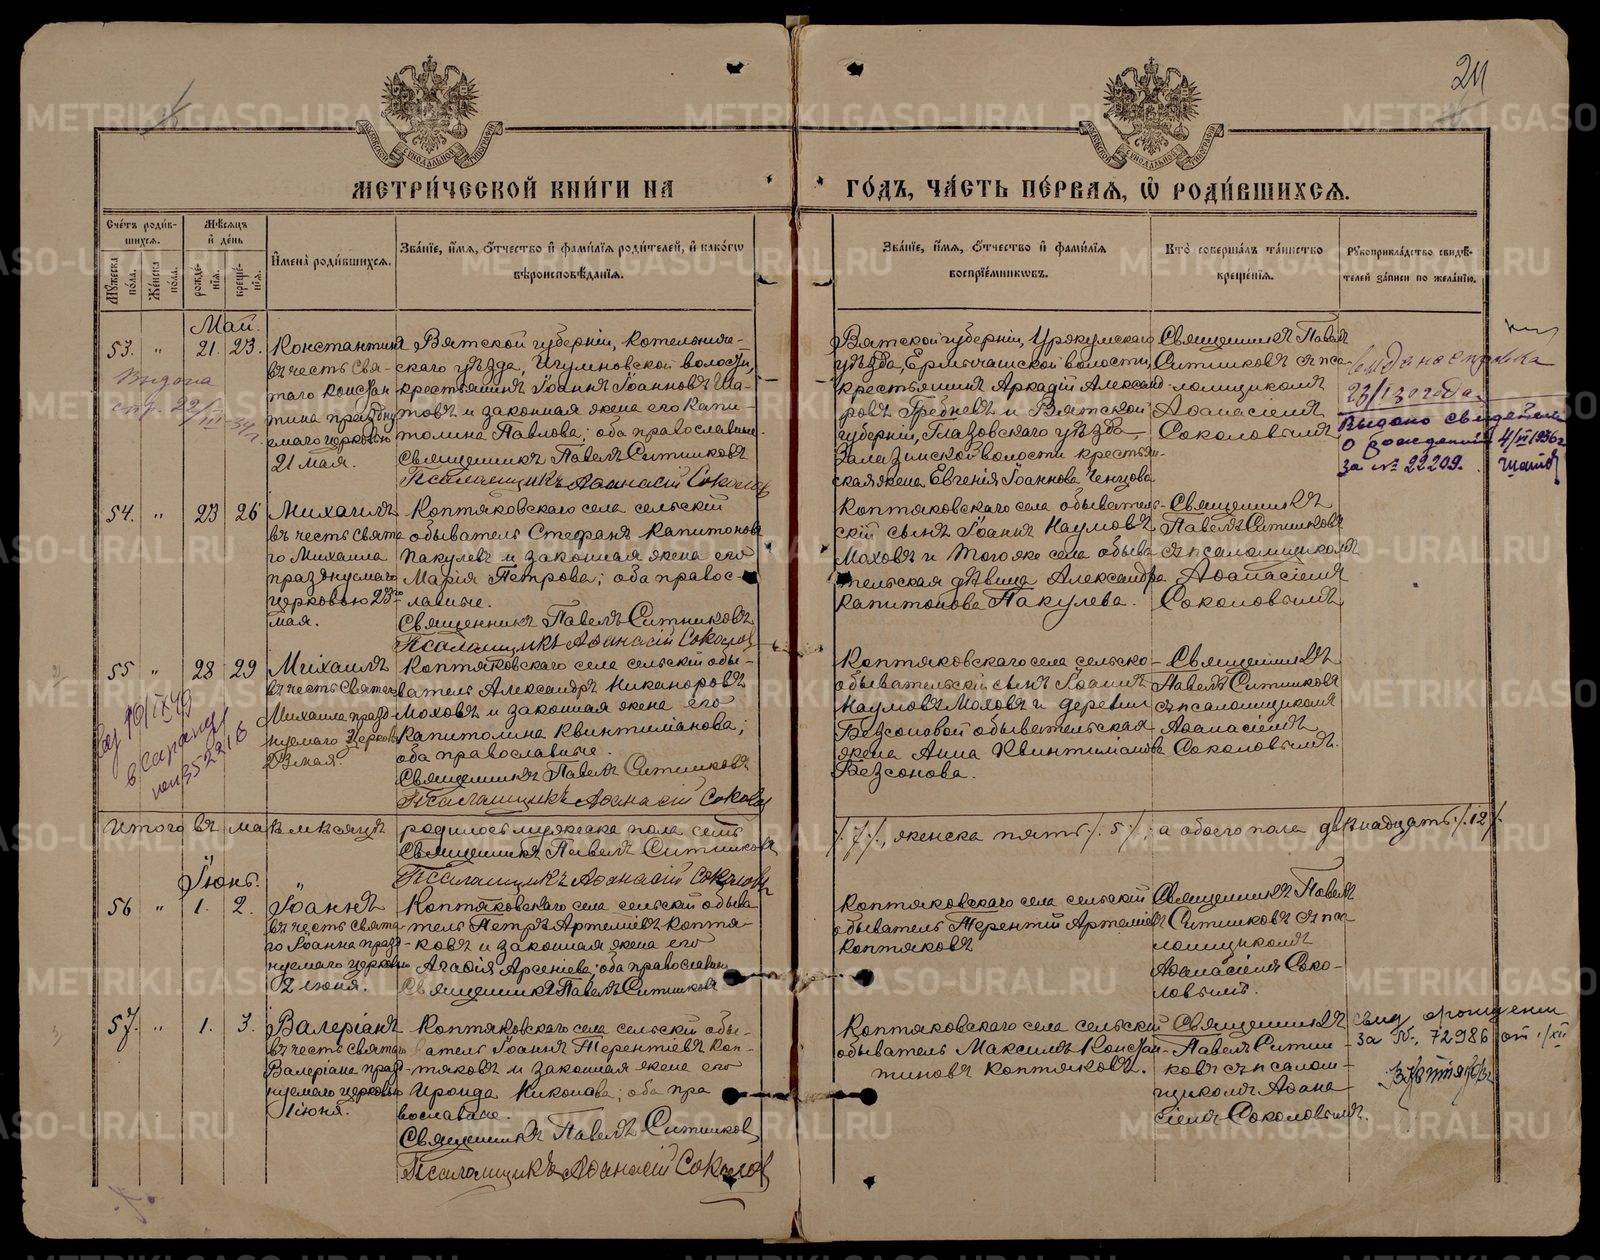 24
МОСКОВСКОЙ СѴНОДАЛЬНОЙ ТИПОГРАФІИ
МОСКОВСКОЙ СѴНОДАЛЬНОЙ ТИПОГРАФІИ
МЕТРИ́ЧЕСКОЙ КНИ́ГИ НА
ГО́ДЪ, ЧА́СТЬ ПЕ́РВАѦ, Ѡ҆ РОДИ́ВШИХСѦ.
Сче́тъ роди́в-
шихсѧ.
Мꙋ́жеска по́ла.
Же́нска по́ла.
Мѣ́сѧцъ
и҆ де́нь
рожде́-
нїѧ.
креще́-
нїѧ.
И҆мена̀ роди́вшихсѧ.
Зва́нїе, и҆́мѧ, ѻ҆́тчество и҆ фами́лїѧ роди́телей, и҆ како́гѡ
вѣроисповѣ́данїѧ.
Зва́нїе, и҆́мѧ, ѻ҆́тчество и҆ фами́лїѧ
воспрїе́мникѡвъ.
Кто̀ соверша́лъ та́инство
креще́нїѧ.
Рꙋкоприкла́дство свидѣ́-
телей за́писи по жела́нїю.
Май.
53. " 21. 23.
Константинъ
въ честь Свя-
таго Констан
тина празднy
емаго церковью
21 мая.
Вятской губерніи, Котельниче-
скаго уѣзда, Игумновской волости,
крестьянинъ Іоаннъ Іоанновъ Ша-
товъ и законная жена его Капи-
толина Павлова; оба православные.
Священникъ Павелъ Ситниковъ
Псаломщикъ Аѳанасій Соколов
Вятской губерніи, Уржумскаго
уѣзда, волости,
крестьянинъ Аркадій Александ-
ровъ Гребневъ и Вятской
губерніи, Глазовскаго уѣзда,
Залазнинской волости крестьян-
ская жена Евгенія Іоаннова Ченцова
Священникъ Павелъ
Ситниковъ съ пса-
ломщикомъ
Аѳанасіемъ
Соколовымъ
Выдана
стр. 22/III-34г.
выдана справка
Выдано свидетел
о рождении 4/VI 1936г
за № 22209.
54. " 23 26
Михаилъ
въ честь Свята
го Михаила
празднуемаго
церковью 23го
мая.
Коптяковскаго села сельскій
обыватель Стефанъ Капитонов
Пакулевъ и законная жена его
Марія Петрова; оба правос-
лавные.
Священникъ Павелъ Ситниковъ
Псаломщикъ Аѳанасій Соколов
Коптяковскаго села обыватель-
скій сынъ Іоаннъ Наумовъ
Моховъ и того же села обыва
тельская дѣвица Александра
Капитонова Пакулева.
Священникъ
Павелъ Ситниковъ
съ псаломщикомъ
Аѳанасіемъ
Соколовымъ
55 " 28 29
Михаилъ
въ честь Святаго
Михаила празд-
нуемаго церковью
23 мая.
Коптяковскаго села сельскій обы-
ватель Александръ Никаноровъ
Моховъ и законная жена его
Капитолина Квинтиліанова;
оба православные.
Священникъ Павелъ Ситниковъ
Псаломщикъ Аѳанасій Соколов
Коптяковскаго села сельско-
обывательскій сынъ Іоаннъ
Наумовъ Моховъ и деревни
Безсоновой обывательская
жена Анна Квинтиліанова
Безсонова.
Священникъ
Павелъ Ситниковъ
съ псаломщикомъ
Аѳанасіемъ
Соколовымъ.
Итого въ маѣ мѣсяцѣ родилось мужеска пола семь
/.7./., женска пять /.5./, а обоего пола двѣнадцать /.12/.
Священникъ Павелъ Ситников
Псаломщикъ Аѳанасій Соколовъ
Іюнь.
56 " 1. 2.
Іоаннъ
въ честь Свята
го Іоанна празд-
нуемаго церковью
2 іюня.
Коптяковскаго села сельскій обыва
тель Петръ Артеміевъ Коптя-
ковъ и законная жена его
Агаѳія Арсеніева; оба православны
Священникъ Павелъ Ситников
Коптяковскаго села сельскій
обыватель Терентій Артеміевъ
Коптяковъ
Священникъ Павелъ
Ситниковъ съ пса-
ломщикомъ
Аѳанасіемъ Соко-
ловымъ.
57. " 1. 3.
Валеріанъ
въ честь Святаго
Валеріана празд-
нуемаго церковью
1 іюня.
Коптяковскаго села сельскій обы-
ватель Іоаннъ Терентіевъ Коп-
тяковъ и законная жена его
Ироида Николова; оба пра
вославные.
Священникъ Павелъ Ситников
Псаломщикъ Аѳанасій Соколов
Коптяковскаго села сельскій
обыватель Максимъ Констан-
тиновъ Коптяковъ.
Священникъ
Павелъ Ситни-
ковъ съ псалом-
щикомъ Аѳана
сіемъ Соколовымъ.
за №, 72986 от 1/XII
METRIKI.GASO-URAL.RU